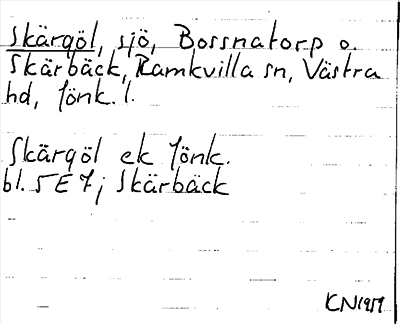 Skärgöl, sjö, Bossnatorp o.
Skärbäck, Ramkvilla sn, Västra
hd, Jönk. l.
Skärgöl ek Jönk.
bl. 5 E 7; Skärbäck